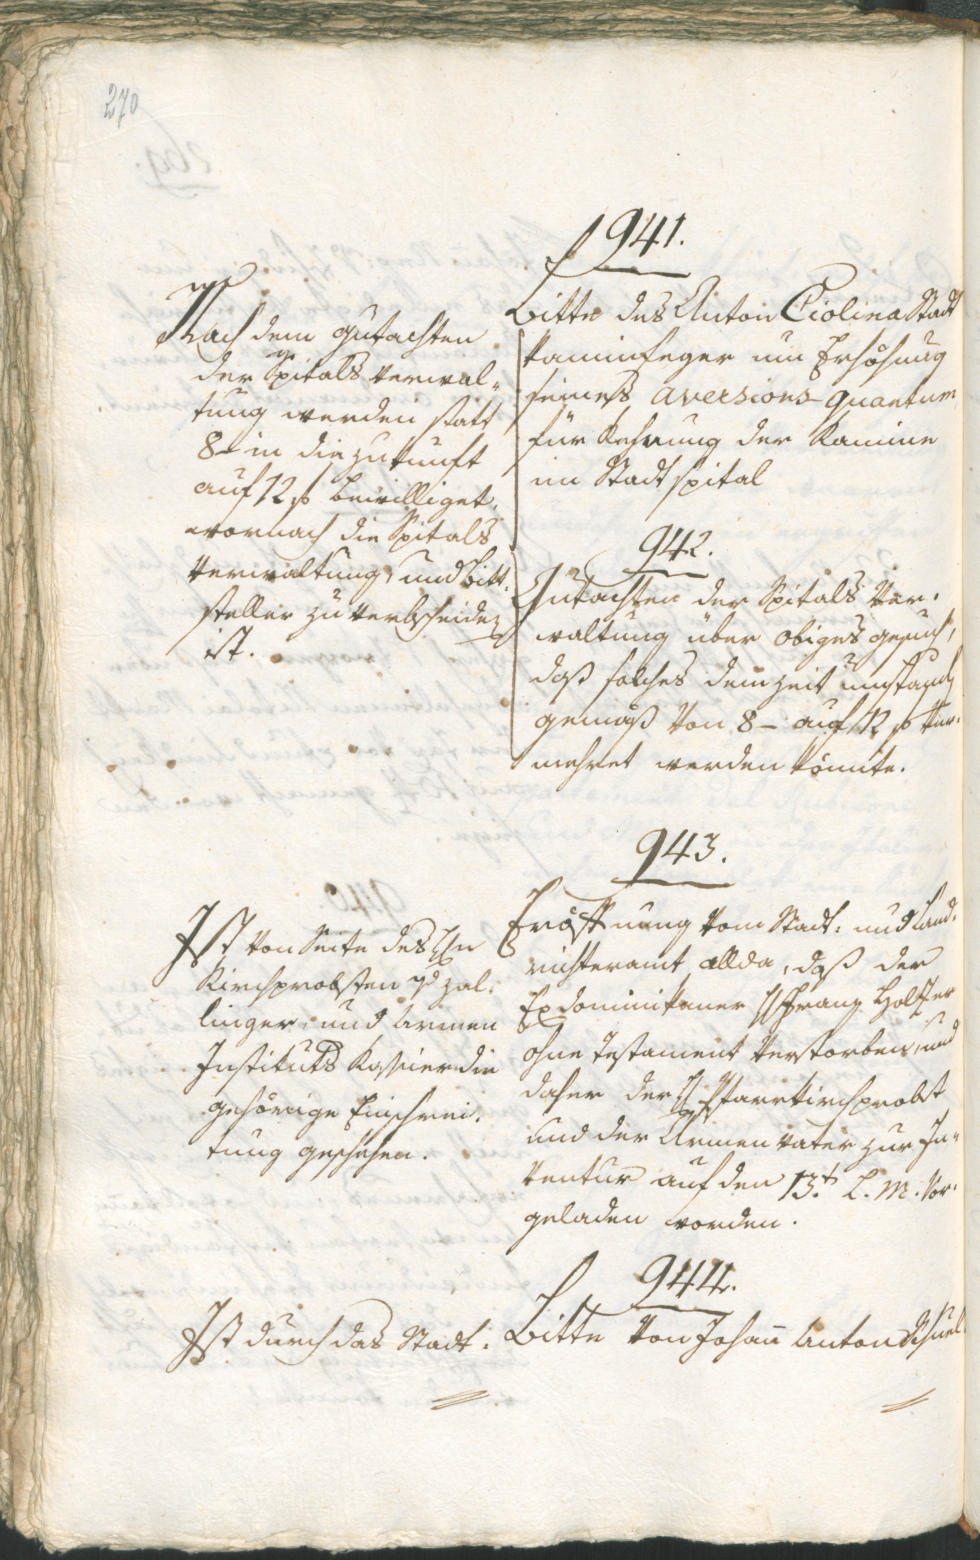 270
941.
Bitte des Anton Ciolina Stadt
kaminfeger um Erhöhung
seines aversions quantum
für Kehrung der Kamine
im Stadtspital
Nach dem Gutachten
der Spitals Verwal-
tung werden statt
8- in die Zukunft
auf 12 f bewilliget,
wornach die Spitals
Verwaltung, und Bitt-
steller zu verbscheiden
ist.
942.
Gutachten der Spitals Ver-
waltung über obiges Gesuch,
daß solches dem Zeit umständ
gemäß von 8 - auf 12 f ver-
mehret werden könnte.
943.
Eröffnung vom Stadt- und Land-
richteramt allda, daß der
Exdominikaner H Franz Holzer
ohne Testament verstorben, und
daher der H Pfarrkirchprobst
und der Armenvater zur In-
ventur auf den 13t. l. M. vor-
geladen worden.
Ist von Seite des Hn
Kirchprobsten v zal-
linger, und Armen
Instituts Kassier die
gehörige Einschrei-
tung geschehen.
944.
Bitte von Johan Anton
Ist durch das Stadt-